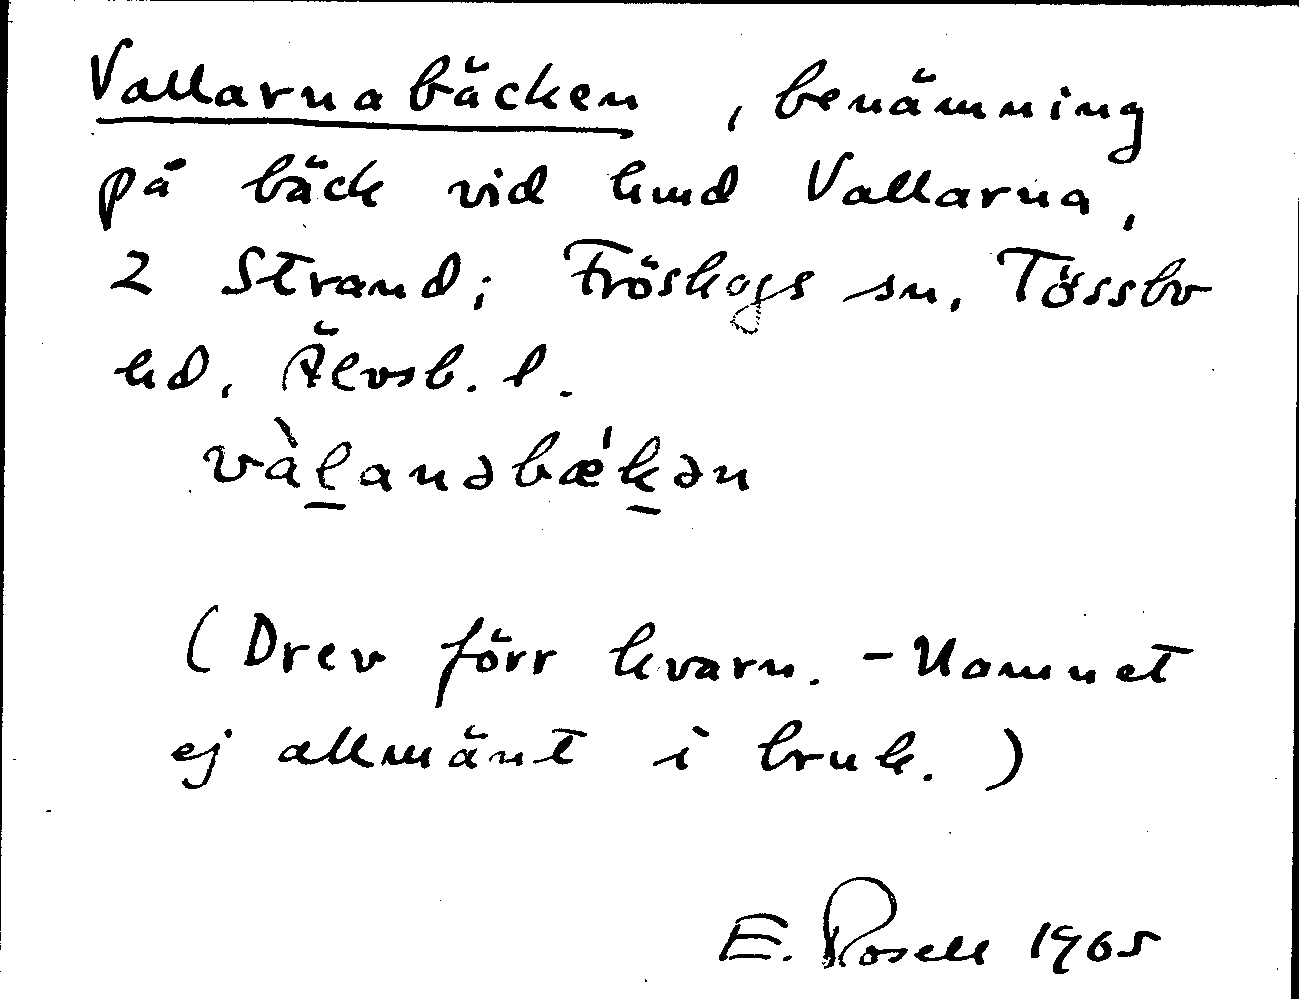 Vallarnabäcken, benämning
på bäck vid hmd Vallarna,
2 Strand; Fröskogs sn, Tössbo
hd, Älvsb. l.
vàl̲anəbæ'k̲ən
(Drev förr kvarn. - Namnet
ej allmänt i bruk.)
E. Rosell 1965